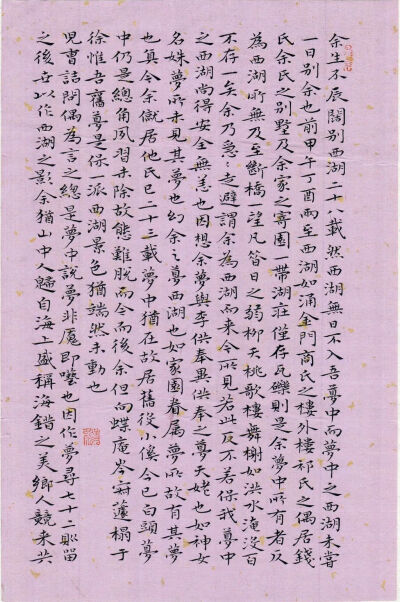 余生不辰闊別西湖二十八載然西湖無日不入吾夢中而夢中之西湖未嘗
一日別余也前甲午丁酉兩至西湖如涌金門商氏之樓外樓祁氏之偶居錢
氏余氏之別墅及余家之寄園一帶湖莊僅存瓦礫則是余夢中所有者反
為西湖所無及至斷橋一望凡昔日之弱柳夭桃歌樓舞榭如洪水淹沒百
不存一矣余乃急々走避謂余為西湖而來今所見若此反不若保我夢中
之西湖尚得安全無恙也因想余夢與李供奉異供奉之夢天姥也如神女
名姝夢所未見其夢也幻余之夢西湖也如家園眷屬夢所故有其夢
也真今余僦居他氏已二十三載夢中猶在故居舊役小傒今已白頭夢
中仍是總角夙習未除故態難脫而今而後余但向蝶庵岑寂蘧榻于
徐惟吾舊夢是保派西湖景色猶端然未動也
兒曹詰問偶為言之總是夢中說夢非魘即囈也因作夢尋七十二則留
之後世以作西湖之影余猶山中人歸自海上盛稱海錯之美鄉人競來共